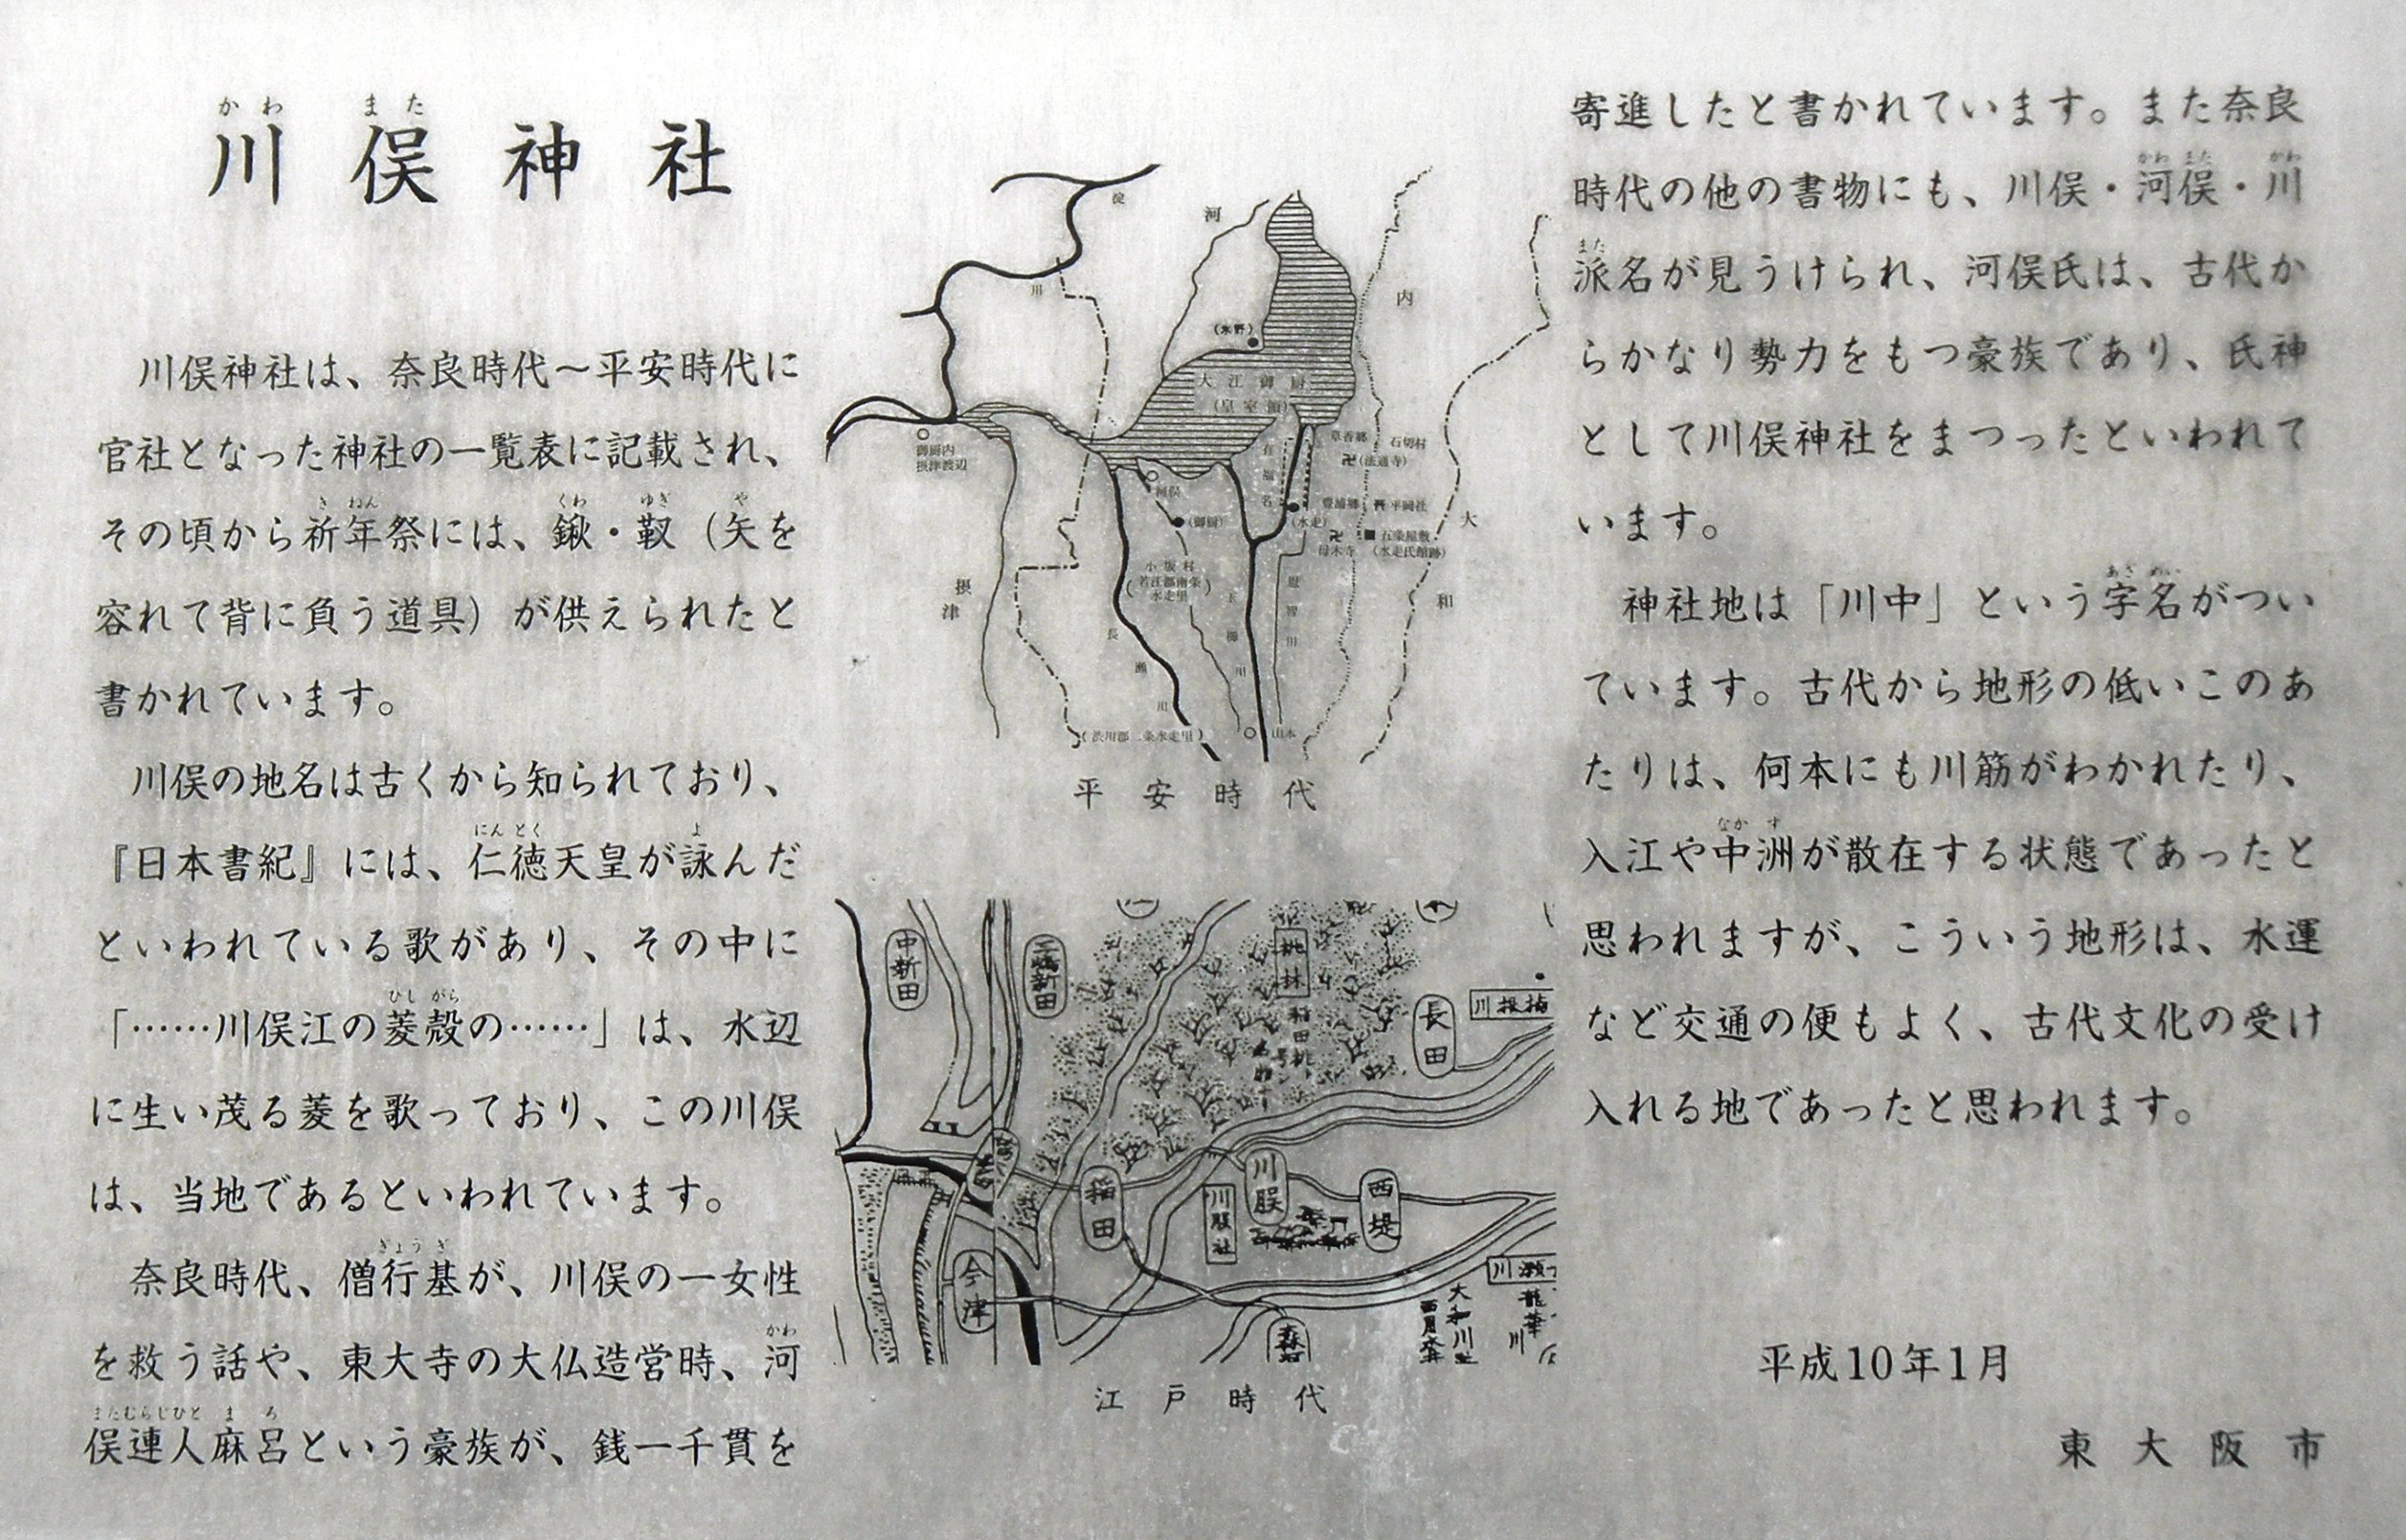 かわ また
川俣神社
川俣神社は、奈良時代～平安時代に
官社となった神社の一覧表に記載され、
き ねん くわ ゆぎ や
その頃から祈年祭には、鍬・靫（矢を
容れて背に負う道具）が供えられたと
書かれています。
川俣の地名は古くから知られており、
にん とく よ
『日本書紀』には、仁徳天皇が詠んだ
といわれている歌があり、その中に
ひし がら
「……川俣江の菱殻の……」は、水辺
に生い茂る菱を歌っており、この川俣
は、当地であるといわれています。
ぎょう ぎ
奈良時代、僧行基が、川俣の一女性
かわ
を救う話や、東大寺の大仏造営時、河
またむらじひと ま ろ
俣連人麻呂という豪族が、銭一千貫を
淀
川
河
内
(氷野)
大江御厨
(皇室領)
御厨内
摂津渡辺
草香郷
石切村
(法通寺)
有福名
河俣
(御厨)
(水走)
豊浦郷
平岡社
五条屋敷
(水走氏館跡)
母木寺
大
和
摂
津
小坂村
(若江郡南条
水走里)
長瀬川
玉櫛川
恩智川
(渋川郡二条水走里)
山本
平安時代
中新田
三嶋新田
桃林
長田
川俣
稲田
川股
川股社
西堤
今津
森河
大和川
江戸時代
寄進したと書かれています。また奈良
かわ また かわ
時代の他の書物にも、川俣・河俣・川
また
派名が見うけられ、河俣氏は、古代か
らかなり勢力をもつ豪族であり、氏神
として川俣神社をまつったといわれて
います。
あざ めい
神社地は「川中」という字名がつい
ています。古代から地形の低いこのあ
たりは、何本にも川筋がわかれたり、
なか す
入江や中洲が散在する状態であったと
思われますが、こういう地形は、水運
など交通の便もよく、古代文化の受け
入れる地であったと思われます。
平成10年1月
東大阪市